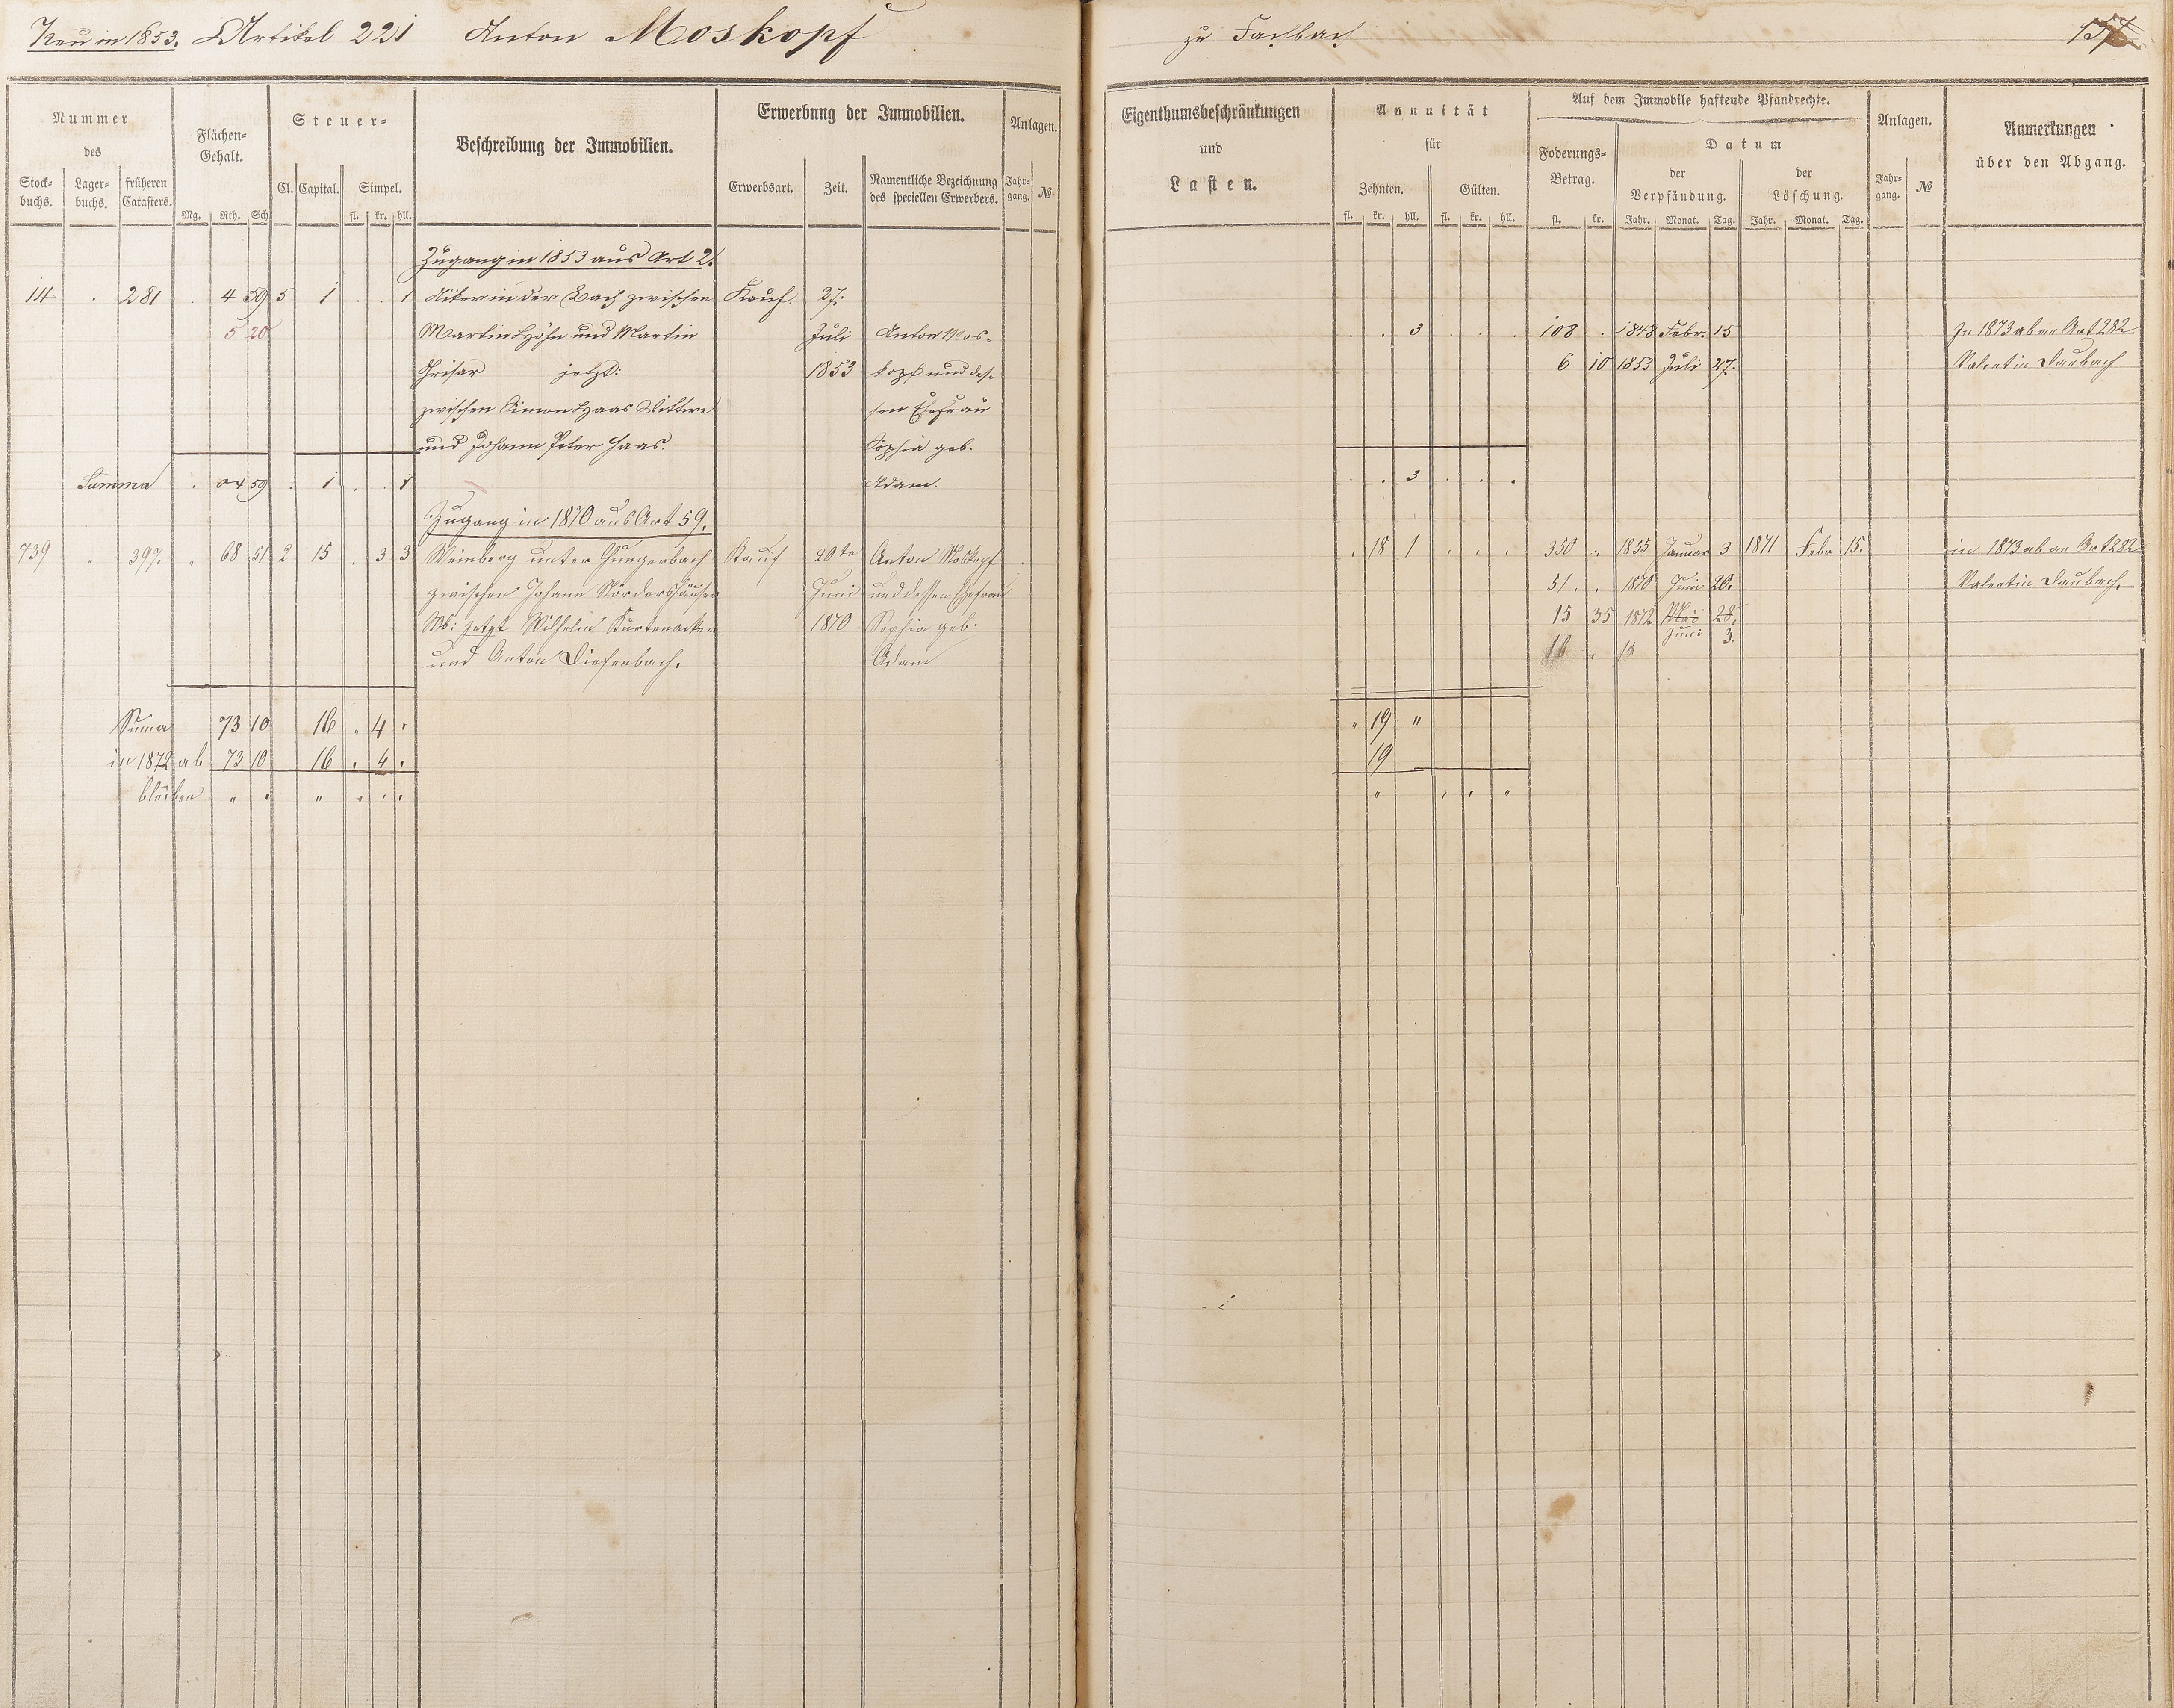 Neu in 1853. Artikel 221 Anton Moskopf zu Fachbach
Nummer des
Stock-buchs. Lager-buchs. früheren Catasters.
Flächen-Gehalt.
Mg. Rth. Sch
Steuer-
Cl. Capital. Simpel.
fl. kr. hll.
Beschreibung der Immobilien.
Erwerbung der Immobilien.
Erwerbsart. Zeit. Namentliche Bezeichnung des speciellen Erwerbers.
Anlagen.
Jahr-gang. №
Eigenthumsbeschränkungen
und
Lasten.
Annuität
für
Zehnten. Gülten.
fl. kr. hll. fl. kr. hll.
Auf dem Immobile haftende Pfandrechte.
Foderungs-Betrag.
fl. kr.
Datum
der Verpfändung. der Löschung.
Jahr. Monat. Tag. Jahr. Monat. Tag.
Anlagen.
Jahr-gang. №
Anmerkungen
über den Abgang.
Zugang in 1853 aus Art 2.
14 . 281 . 4 59 5 1 . . 1 Acker in der Bach zwischen Kauf. 27.
5 20 Martin Höhn und Martin Juli Anton Mos- . . 3 . . . 108 . 1848 Febr. 15 In 1873 ab an Art 282
Grisar jetzt: 1853 kopf und des- 6 10 1853 Juli 27. Valentin Daubach
zwischen Simon Haas Wittwe sen Ehefrau
und Johann Peter Haas. Sophia geb.
Summa . 04 59 . 1 . . 1 Adam. . . 3 . . .
Zugang in 1870 aus Art 59.
739 " 397. " 68 51 2 15 . 3 3 Weinberg unter Hungerbach Kauf 20te Anton Moskopf . 18 1 . . . 350 " 1855 Januar 3 1871 Febr 15. in 1873 ab an Art 282
zwischen Johann Nördershäuser Juni und dessen Ehefrau 51. . 1870 Juni 20. Valentin Daubach.
jetzt Wilhelm 1870 Sophia geb. 15 35 1872 Mai 28.
und Anton Diefenbach. Adam 16 . 18 Juni 3.
Suma 73 10 16 " 4 . " 19 "
in 1872 ab 73 10 16 . 4 . 19
bleiben " . " " . . " . . "